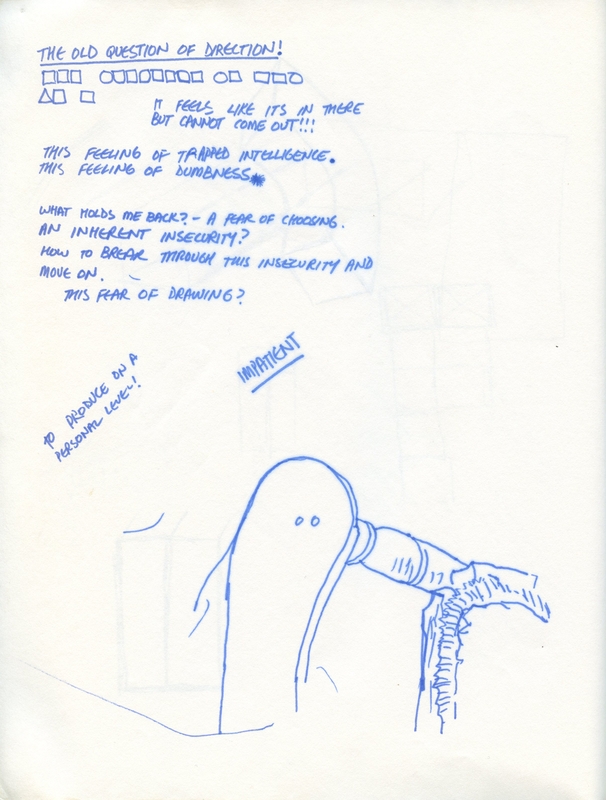 THE OLD QUESTION OF DIRECTION!
IT FEELS LIKE ITS IN THERE
BUT CANNOT COME OUT!!!
THIS FEELING OF TRAPPED INTELLIGENCE.
THIS FEELING OF DUMBNESS
WHAT HOLDS ME BACK? - A FEAR OF CHOOSING.
AN INHERENT INSECURITY?
HOW TO BREAK THROUGH THIS INSECURITY AND
MOVE ON.
THIS FEAR OF DRAWING?
IMPATIENT
TO PRODUCE ON A
PERSONAL LEVEL!